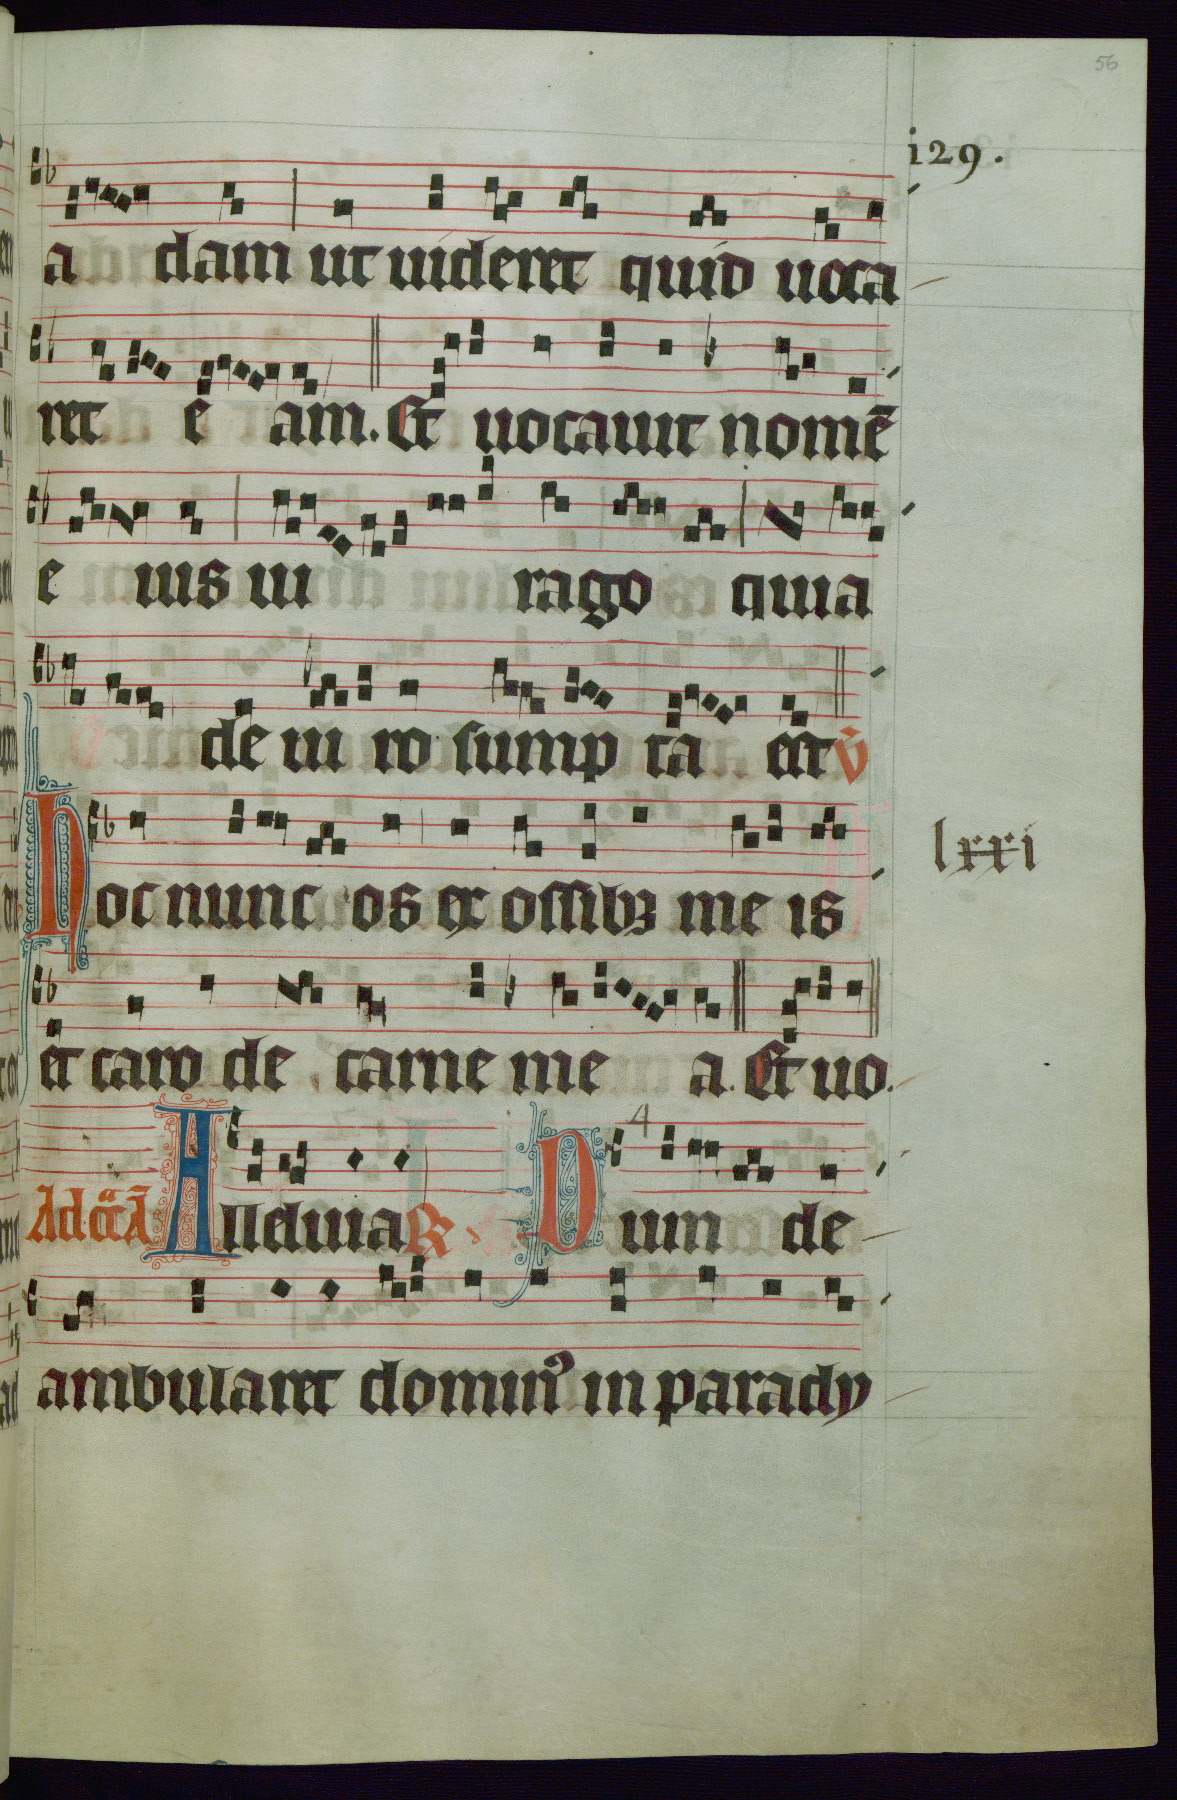 56
i29.
a dam ut uideret quid uoca
ret e am. Et uocauit nomē
e ius ui rago quia
de ui ro sump ta est v̄
lxxi
Hoc nunc os ex ossibꝫ me is
et caro de carne me a. Et uo.
4
Alleluia R Dum de
ambularet dominꝰ in parady